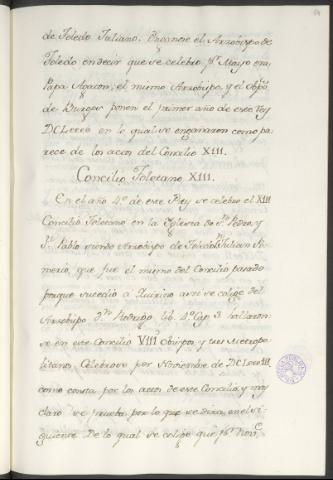 de Toledo Juliano. Engañose el Arzobispo de
Toledo en decir que se celebro pr. Mayo era
Papa Agaton; el mismo Arzobispo, y el Obpo.
de Burgos ponen el primer año de este Rey
DCLxxxo en lo qual se engañaron como pa
rece de los actos del Concilio XIII.
Concilio Toletano XIII.
En el año 4º de este Rey se celebro el XIII
Concilio Toletano en la Iglesia de Sn. Pedro, y
Sn. Pablo siendo Arzobispo de Toledo Sn. Julian
que fue el mismo del Concilio pasado
porque sucedio a Quirico assi se colige del
Arzobispo Dn. Rodrigo lib. 4º Cap. 3. hallaron
se en este Concilio VIII Obispos, y tres Metropo
litanos. Celebrose por Noviembre de
como consta por los actos de este Concilio, y muy
claro se prueba por lo que se dira en el si
guiente. De lo qual se colige que pr. Nove.